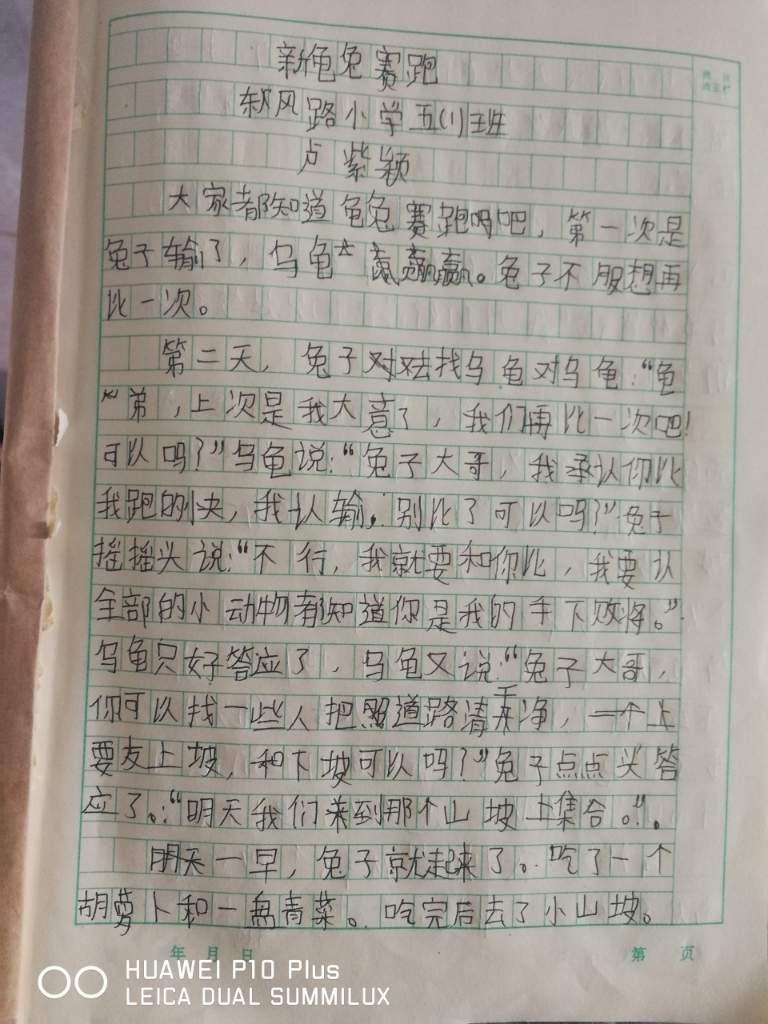 新龟兔赛跑
东风路小学五(1)班
卢紫颖
大家都知道龟兔赛跑吗吧，第一次是
兔子输了，乌龟赢。兔子不服想再
比一次。
第二天，兔子对找乌龟对乌龟：“龟
弟，上次是我大意了，我们再比一次吧！
可以吗？”乌龟说：“兔子大哥，我承认你比
我跑的快，我认输，别比了可以吗？”兔子
摇摇头说：“不行，我就要和你比，我要认
全部的小动物都知道你是我的手下败将。”
乌龟只好答应了，乌龟又说：“兔子大哥，
你可以找一些人把道路清干净，一个上
要友上坡，和下坡可以吗？”兔子点点头答
应了。：“明天我们来到那个山坡上集合。”。
明天一早，兔子就起来了。吃了一个
胡萝卜和一盘青菜。吃完后去了小山坡。
年 月 日
第 页
HUAWEI P10 Plus
LEICA DUAL SUMMILUX